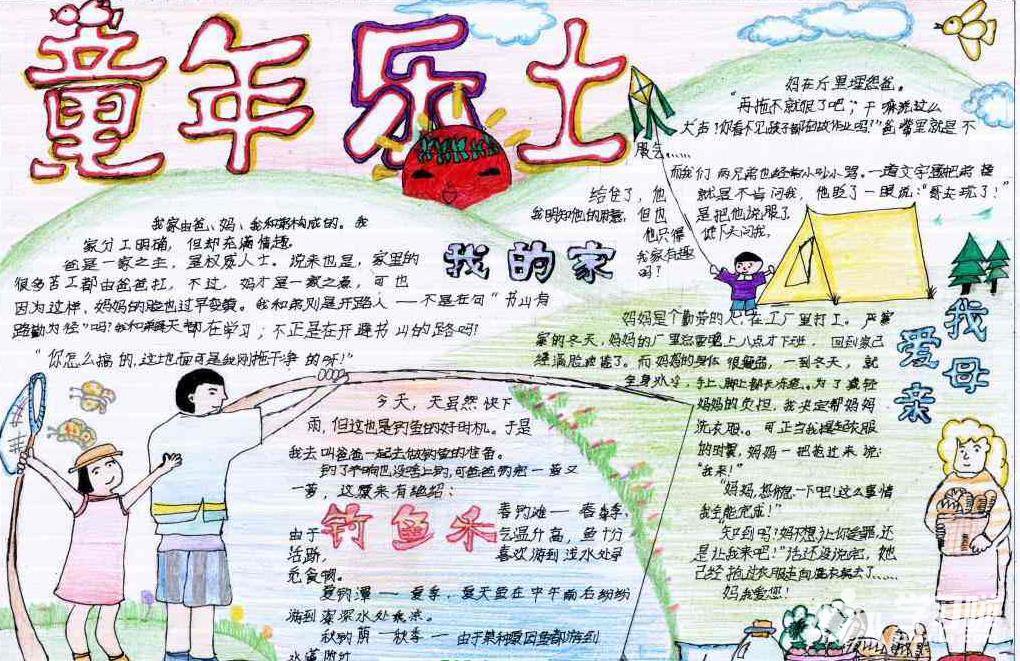 童年乐土
我的家
我家由爸、妈、我和弟构成的。我
家分工明确，但却充满情趣。
爸是一家之主，是权威人士。说来也是，家里的
很多苦工都由爸爸扛，不过，妈才是一家之最，可也
因为这样，妈妈的脸也过早变黄。我和弟则是开路人——不是有句“书山有
路勤为径”吗？我和弟天天都在学习；不正是在开避书山的路吗！
“你怎么搞的，这地面可是我刚拖干净的呀！”
妈在斤里埋怨爸。
“再拖不就很了吧；干嘛洗这么
大声？你看不见孩子都在做作业吗？”爸嘴里就是不
服告……
而我们两兄弟也经常小吵小骂。一道文字题把弟
给住了，他就是不肯问我，他眨了一眼说：“哥去玩了！”
我明知他的，但也是把他说服了
他只得低下头问我，
我家有趣
吗？
我爱母亲
妈妈是个勤劳的人，在工厂里打工。严寒
的冬天，妈妈的厂里总要晚上八点才下班，回到家已
经满脸疲倦了。而妈妈的身体很，一到冬天，就
全身冰冷，手上、脚上都长冻疮。为了减轻
妈妈的负担，我决定帮妈妈
洗衣服。可正当我提起衣服
的时，妈妈一把抢过来说：
“我来！”
“妈妈，您休息一下吧！这么事情
我会能完成！”
“知到吗？妈不想让你受罪，还
是让我来吧！”话还没说完，她
已经抢过衣服走向洗衣去了……
妈我爱您！
钓鱼禾
今天，天虽然快下
雨，但这也是钓鱼的好时机。于是
我去叫爸爸一起去做钓鱼的准备。
钓了半晌也没啥上钓，可爸爸钓完一又
一，这原来有绝招：
春钓滩——春季，
由于气温升高，鱼十分
活跃，喜欢游到浅水处寻
觅食物。
夏钓潭——夏季，夏天鱼在中午前后纷纷
游到深水处乘凉。
秋钓荫——秋季——由于某种原因鱼都游到